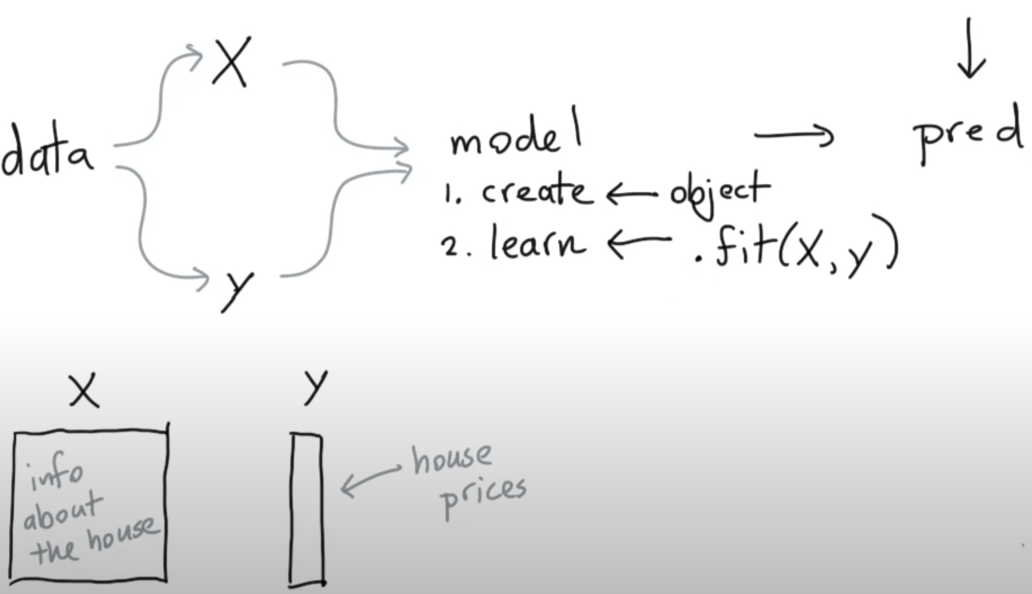 X
data
model → pred
1. create ← object
2. learn ← .fit(X, y)
y
X y
info
about
the house
house
prices